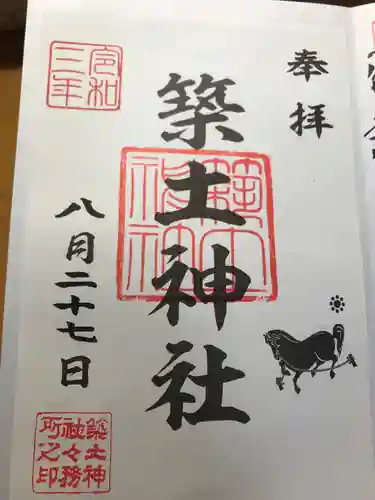 奉拝
築土神社
築土神社
令和三年
八月二十七日
築土神社々務所之印